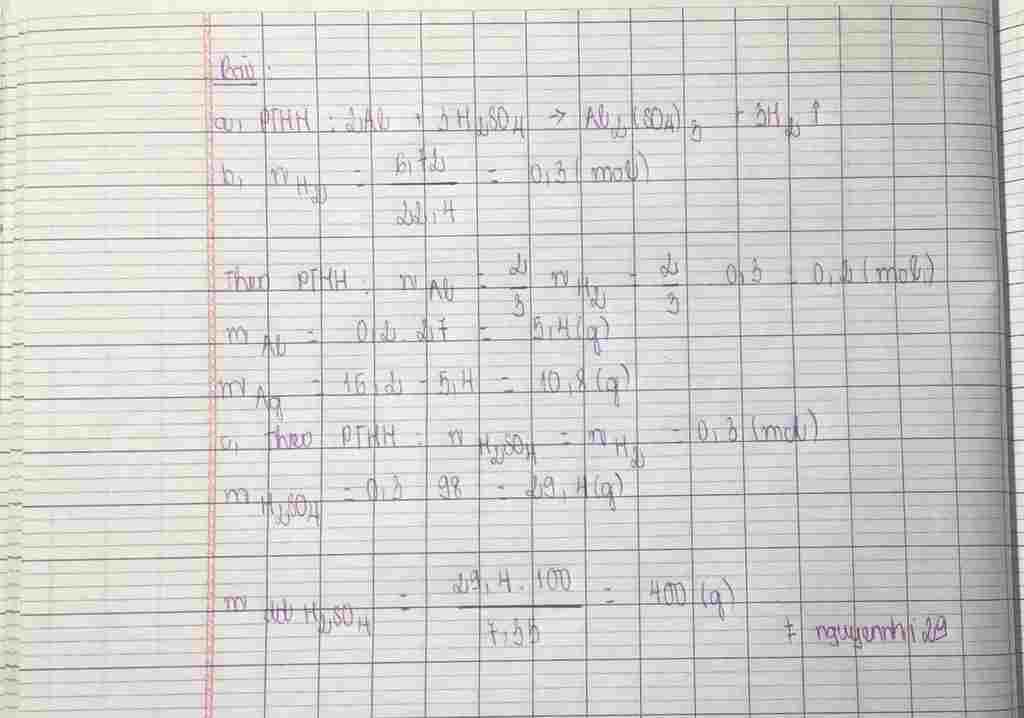 Bài:
a, PTHH: 2Al + 3H₂SO₄ → Al₂(SO₄)₃ + 3H₂↑
b, n H₂ = 6,72 / 22,4 = 0,3 (mol)
Theo PTHH: n Al = 2/3 n H₂ = 2/3 . 0,3 = 0,2 (mol)
m Al = 0,2 . 27 = 5,4 (g)
m Ag = 16,2 - 5,4 = 10,8 (g)
c, Theo PTHH: n H₂SO₄ = n H₂ = 0,3 (mol)
m H₂SO₄ = 0,3 . 98 = 29,4 (g)
m dd H₂SO₄ = 29,4 . 100 / 7,35 = 400 (g)
nguyennhi 29